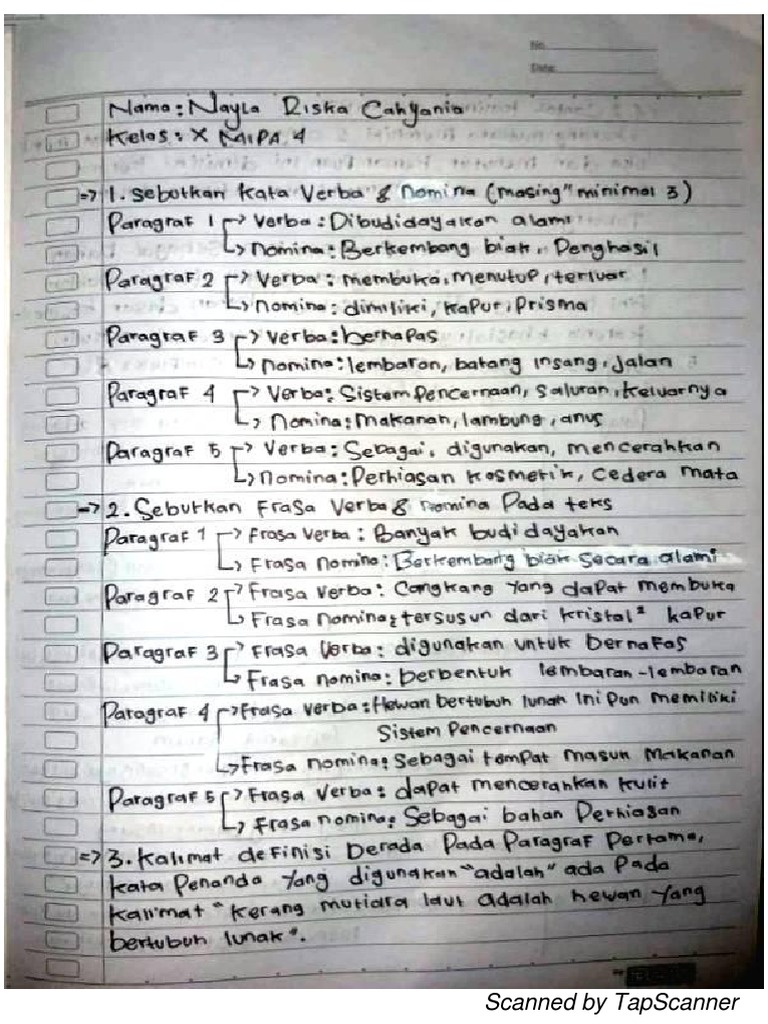 No.
Date:
Nama : Nayla Riska Cahyania
Kelas : X MIPA 4
=> 1. Sebutkan Kata Verba & Nomina (masing" minimal 3)
Paragraf 1 -> Verba : Dibudidayakan alami
-> Nomina : Berkembang biak, Penghasil
Paragraf 2 -> Verba : membuka, menutup, terluar
-> Nomina : dimiliki, kapur, Prisma
Paragraf 3 -> Verba : bernapas
-> Nomina : lembaran, batang insang, jalan
Paragraf 4 -> Verba : Sistem Pencernaan, Saluran, Keluarnya
-> Nomina : Makanan, lambung, anus
Paragraf 5 -> Verba : Sebagai, digunakan, mencerahkan
-> Nomina : Perhiasan kosmetik, Cedera mata
=> 2. Sebutkan Frasa Verba & Nomina Pada teks
Paragraf 1 -> Frasa Verba : Banyak budidayakan
-> Frasa Nomina : Berkembang biak Secara alami
Paragraf 2 -> Frasa Verba : Cangkang yang dapat membuka
-> Frasa Nomina : tersusun dari kristal² kapur
Paragraf 3 -> Frasa Verba : digunakan untuk bernafas
-> Frasa nomina : berbentuk lembaran-lembaran
Paragraf 4 -> Frasa Verba : Hewan bertubuh lunak ini Pun memiliki
Sistem Pencernaan
-> Frasa nomina : Sebagai tempat masuk Makanan
Paragraf 5 -> Frasa Verba : dapat mencerahkan kulit
-> Frasa nomina : Sebagai bahan Perhiasan
=> 3. Kalimat definisi berada Pada Paragraf Pertama,
kata Penanda yang digunakan "adalah" ada Pada
kalimat "kerang mutiara laut adalah hewan yang
bertubuh lunak".
Scanned by TapScanner